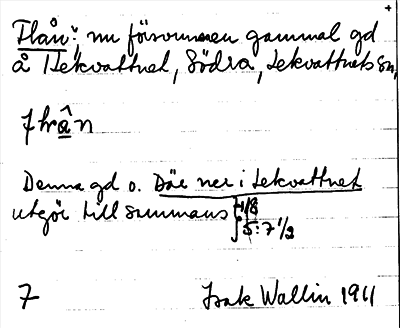 Flån: nu försvunnen gammal gd
å Lekvattnet, Södra, Lekvattnets sn,
fhrâ̠n
Denna gd o. Där ner i Lekvattnet
utgör tillsammans 1/8
5:7 1/2
7 Isak Wallin 1911